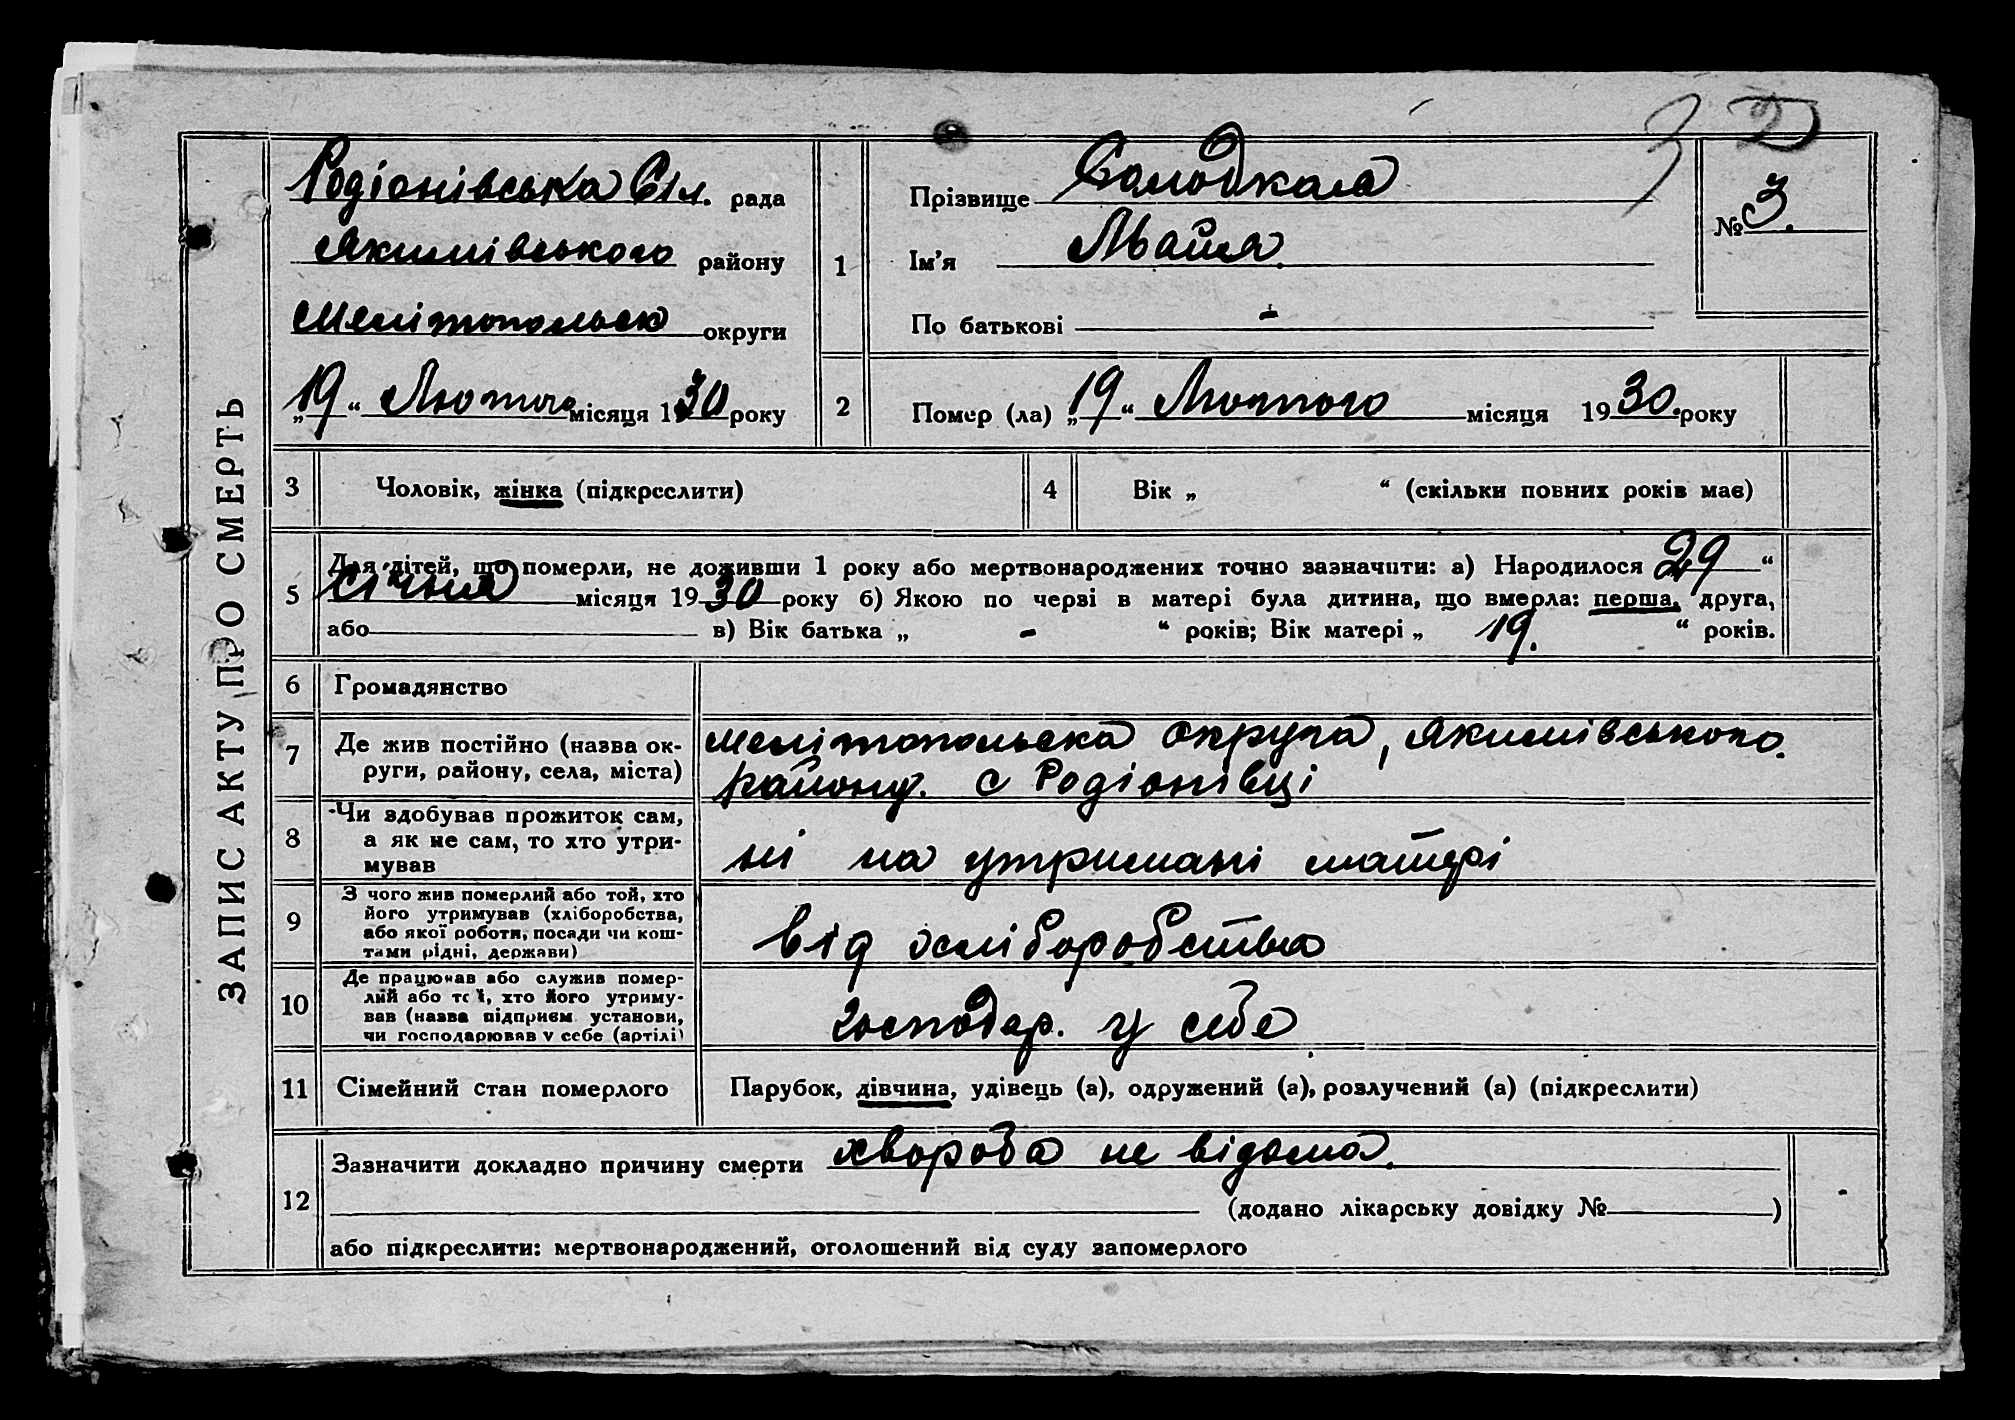 ЗАПИС АКТУ ПРО СМЕРТЬ
Родіонівська Сіл. рада
Якимівського району
Мелітопольськ округи
„19“ Лютого місяця 1930 року
1
Прізвище Солодкая
Ім'я Майя
По батькові -
№ 3.
3
2
Помер (ла) „19“ Лютого місяця 1930. року
3
Чоловік, жінка (підкреслити)
4
Вік „ “ (скільки повних років має)
5
Для дітей, що померли, не доживши 1 року або мертвонароджених точно зазначити: а) Народилося 29 “
січня місяця 1930 року б) Якою по черві в матері була дитина, що вмерла: перша, друга,
або в) Вік батька „ - “ років; Вік матері „ 19. “ років.
6
Громадянство
7
Де жив постійно (назва ок-
руги, району, села, міста)
Мелітопольська округа, Якимівського
району. с Родіонівці
8
Чи здобував прожиток сам,
а як не сам, то хто утри-
мував
ні на утримані матері
9
З чого жив померлий або той, хто
його утримував (хліборобства,
або якої роботи, посади чи кош-
тами рідні, держави)
від хліборобства
10
Де працював або служив помер-
лий або той, хто його утриму-
вав (назва підприєм. установи,
чи господарював у себе (артілі)
господар. у себе
11
Сімейний стан померлого
Парубок, дівчина, удівець (а), одружений (а), розлучений (а) (підкреслити)
12
Зазначити докладно причину смерти хвороба не відома.
(додано лікарську довідку № )
або підкреслити: мертвонароджений, оголошений від суду запомерлого